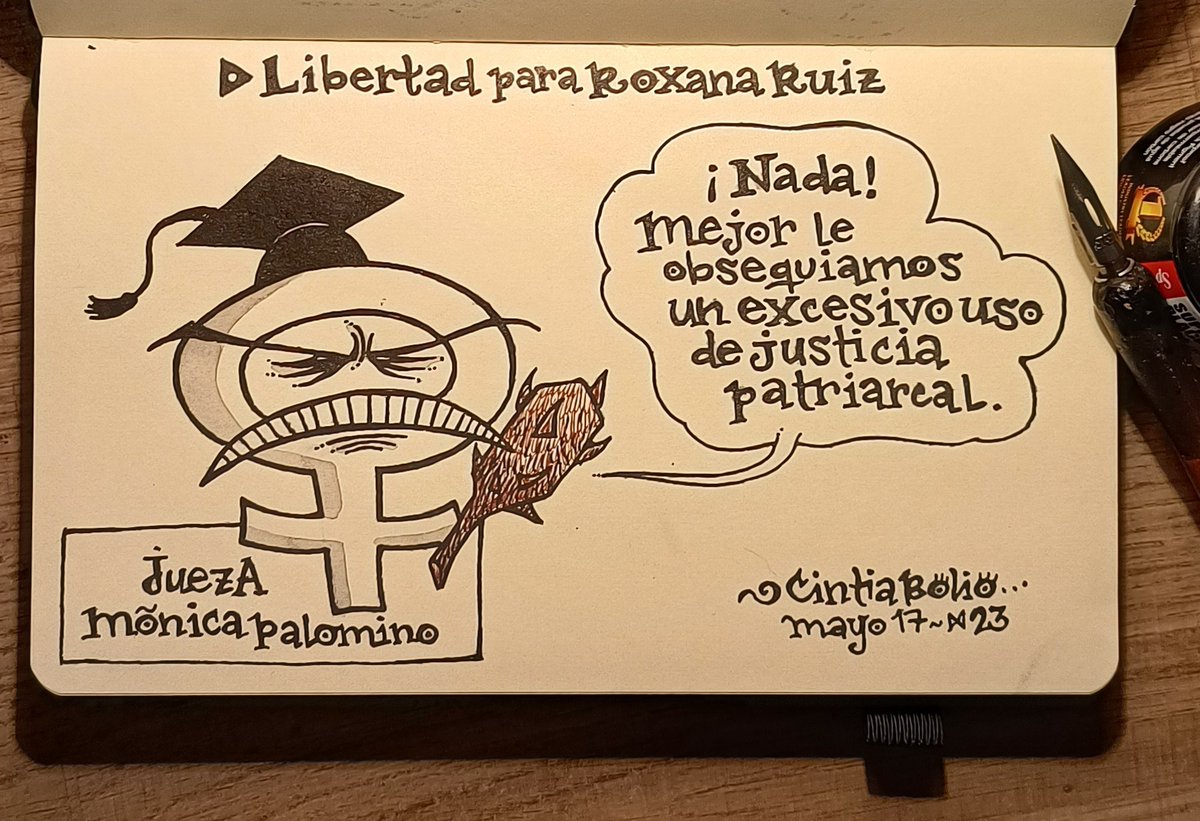 Libertad para Roxana Ruiz
¡Nada!
mejor le
obsequiamos
un excesivo uso
de justicia
patriarcal.
juezA
mõnica palomino
Cintia Bolio...
mayo 17~23